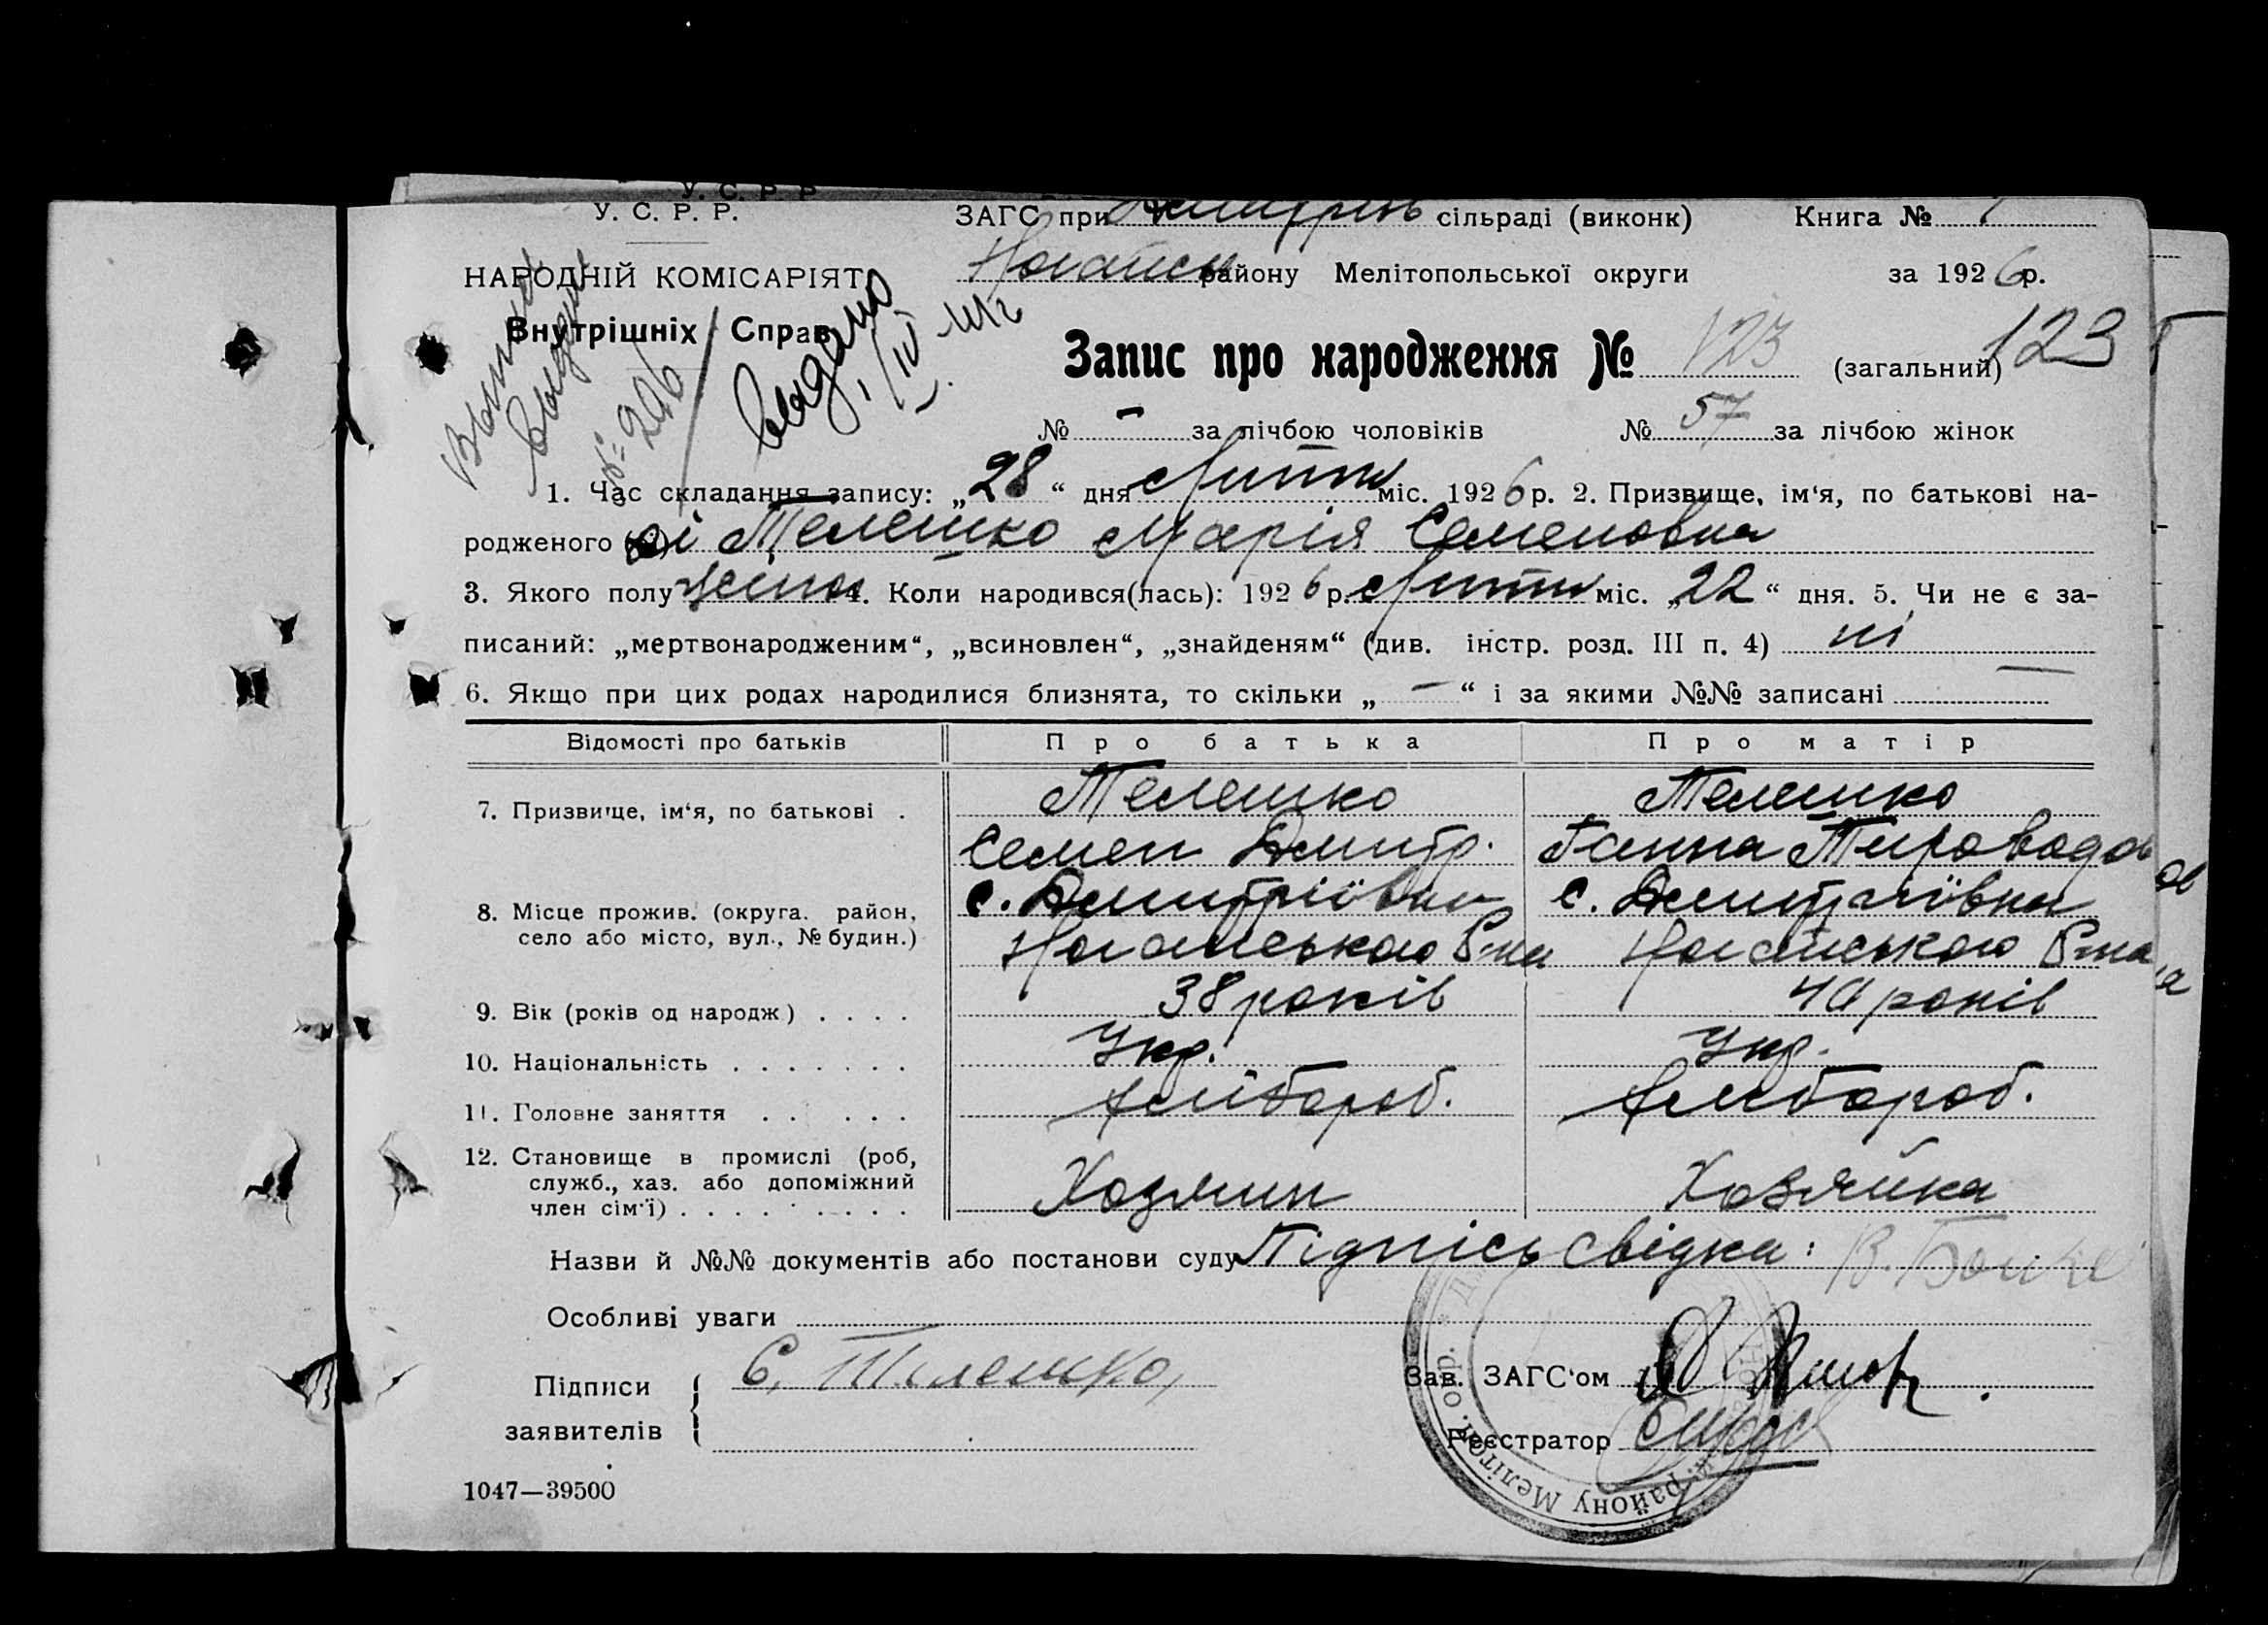 У. С. Р. Р
У. С. Р. Р.
ЗАГС при сільраді (виконк) Книга №
НАРОДНІЙ КОМІСАРІЯТ
району Мелітопольської округи за 1926 р.
Внутрішніх Справ
№ 206
видано
Запис про народження № 123 (загальний) 123
№ – за лічбою чоловіків № 57 за лічбою жінок
1. Час складання запису: „28“ дня міс. 1926 р. 2. Призвище, ім‘я, по батькові на-
родженого Телешко Марія Семеновна
3. Якого полу 4. Коли народився(лась): 1926 р. міс. „22“ дня. 5. Чи не є за-
писаний: „мертвонародженим“, „всиновлен“, „знайденям“ (див. інстр. розд. III п. 4) ні
6. Якщо при цих родах народилися близнята, то скільки „ – “ і за якими №№ записані –
Відомості про батьків Про батька Про матір
7. Призвище, ім‘я, по батькові . Телешко Телешко
Семен Дмитр. Ганна
8. Місце прожив. (округа. район, с. Дмитріївка с. Дмитріївка
село або місто, вул., № будин.) Ногайського Р-на Ногайського Р-на
9. Вік (років од народж) . . . . 38 років років
10. Національність . . . . . . . Укр. Укр.
11. Головне заняття . . . . . хлібороб. хлібороб.
12. Становище в промислі (роб,
служб., хаз. або допоміжний
член сім'ї) . . . . . . . . . Хозяин Хозяйка
Назви й №№ документів або постанови суду Підпісь свідка:
Особливі уваги
Підписи С. Телешко,
заявителів
Зав. ЗАГС‘ом
Реєстратор
району Меліто
окр.
1047—39500